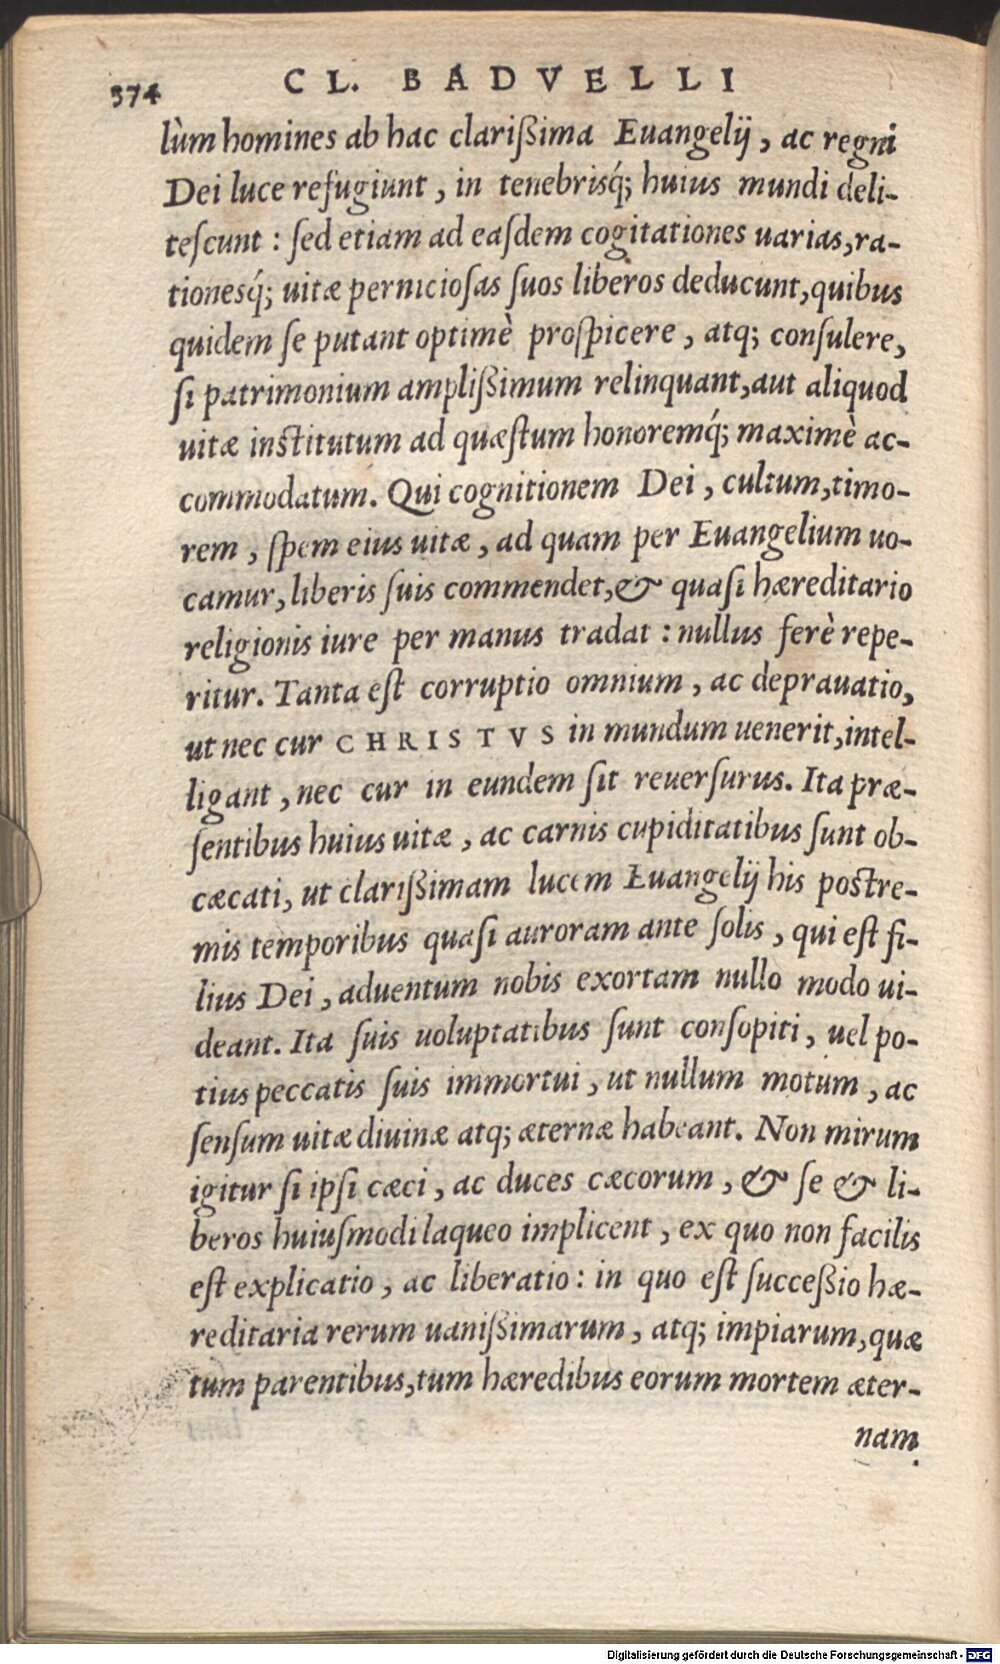 374
CL. BADVELLI
lùm homines ab hac clarißima Euangelij, ac regni
Dei luce refugiunt, in tenebrisq́; huius mundi deli-
teſcunt: ſed etiam ad eaſdem cogitationes uarias, ra-
tionesq́; uitæ pernicioſas ſuos liberos deducunt, quibus
quidem ſe putant optimè proſpicere, atq; conſulere,
ſi patrimonium amplißimum relinquant, aut aliquod
uitæ inſtitutum ad quæſtum honoremq́; maximè ac-
commodatum. Qui cognitionem Dei, cultum, timo-
rem, ſpem eius uitæ, ad quam per Euangelium uo-
camur, liberis ſuis commendet, & quaſi hæreditario
religionis iure per manus tradat: nullus ferè repe-
ritur. Tanta eſt corruptio omnium, ac deprauatio,
ut nec cur CHRISTVS in mundum uenerit, intel-
ligant, nec cur in eundem ſit reuerſurus. Ita præ-
ſentibus huius uitæ, ac carnis cupiditatibus ſunt ob-
cæcati, ut clarißimam lucem Euangelij his poſtre-
mis temporibus quaſi auroram ante ſolis, qui eſt fi-
lius Dei, aduentum nobis exortam nullo modo ui-
deant. Ita ſuis uoluptatibus ſunt conſopiti, uel po-
tius peccatis ſuis immortui, ut nullum motum, ac
ſenſum uitæ diuinæ atq; æternæ habeant. Non mirum
igitur ſi ipſi cæci, ac duces cæcorum, & ſe & li-
beros huiuſmodi laqueo implicent, ex quo non facilis
eſt explicatio, ac liberatio: in quo eſt ſucceßio hæ-
reditaria rerum uanißimarum, atq; impiarum, quæ
tum parentibus, tum hæredibus eorum mortem æter-
nam
Digitalisierung gefördert durch die Deutsche Forschungsgemeinschaft - DFG